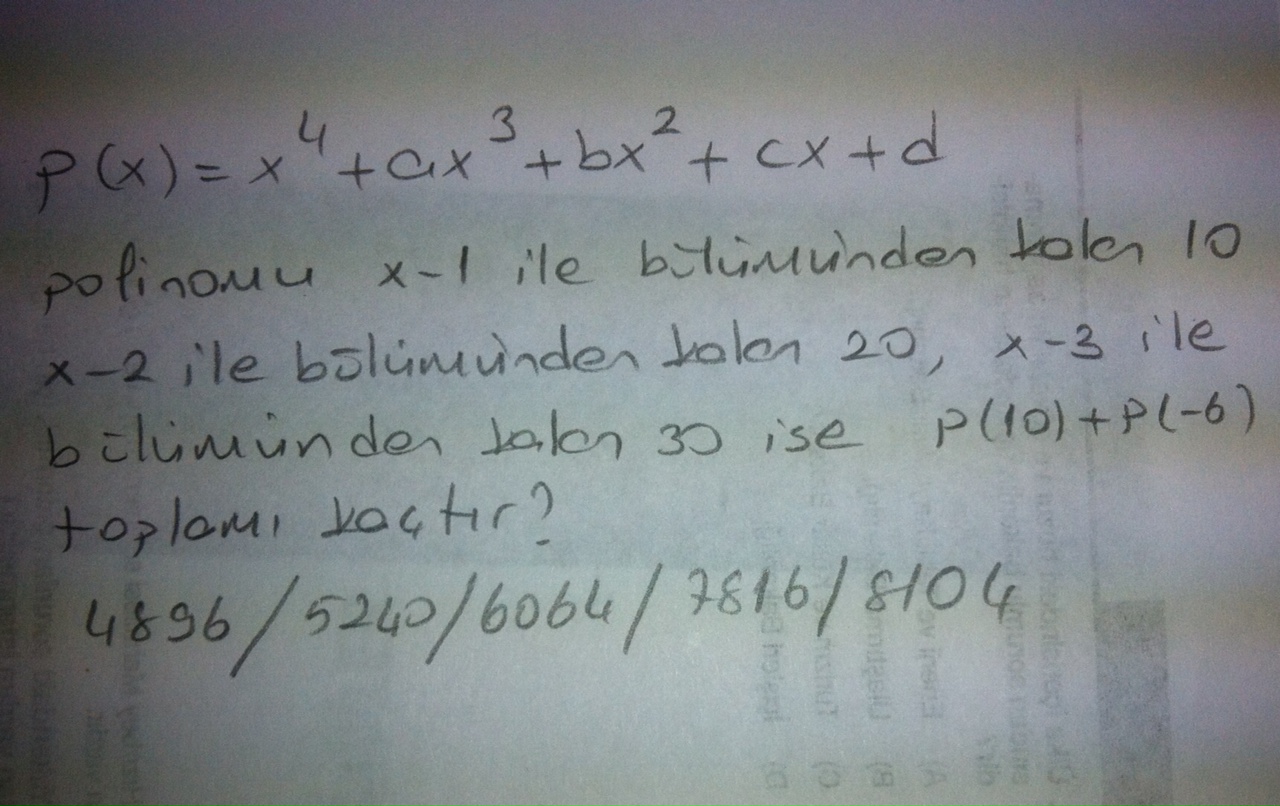 P(x) = x⁴ + ax³ + bx² + cx + d
polinomu x-1 ile bölümünden kalan 10
x-2 ile bölümünden kalan 20, x-3 ile
bölümünden kalan 30 ise P(10)+P(-6)
toplamı kaçtır?
4896/5240/6064/7816/8104